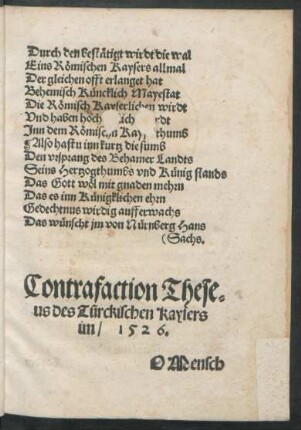 Durch den bestätigt wirdt die wal
Eins Römischen Kaysers allmal
Der gleichen offt erlanget hat
Behemisch Küncklich Mayestat
Die Römisch Kayserlichen wirdt
Vnd haben hoch ich rdt
Inn dem Römisc Kay thumb
Also hastu inn kurtz die sumb
Den vrsprang des Behamer Landts
Seins Hertzogthumbs vnd Künig stands
Das Gott wöl mit gnaden mehrn
Das es inn Künigklichen ehrn
Gedechtnus wirdig aufferwachs
Das wünscht jm von Nürnberg Hans
(Sachs.
Contrafaction These-
us des Türckischen Kaysers
im/ 1526.
O Mensch